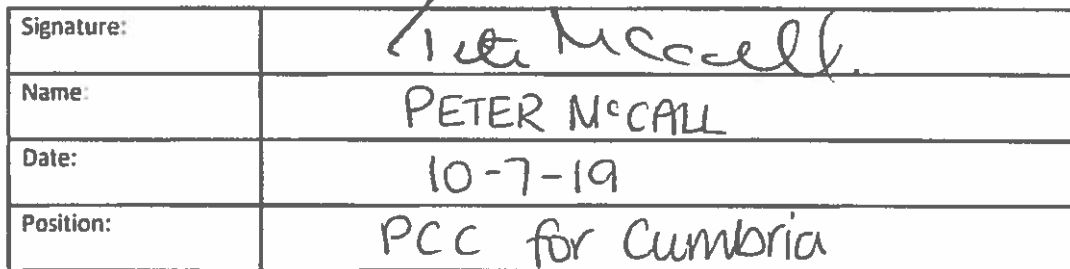 Signature: Pete McCall.
Name: PETER McCALL
Date: 10-7-19
Position: PCC for Cumbria